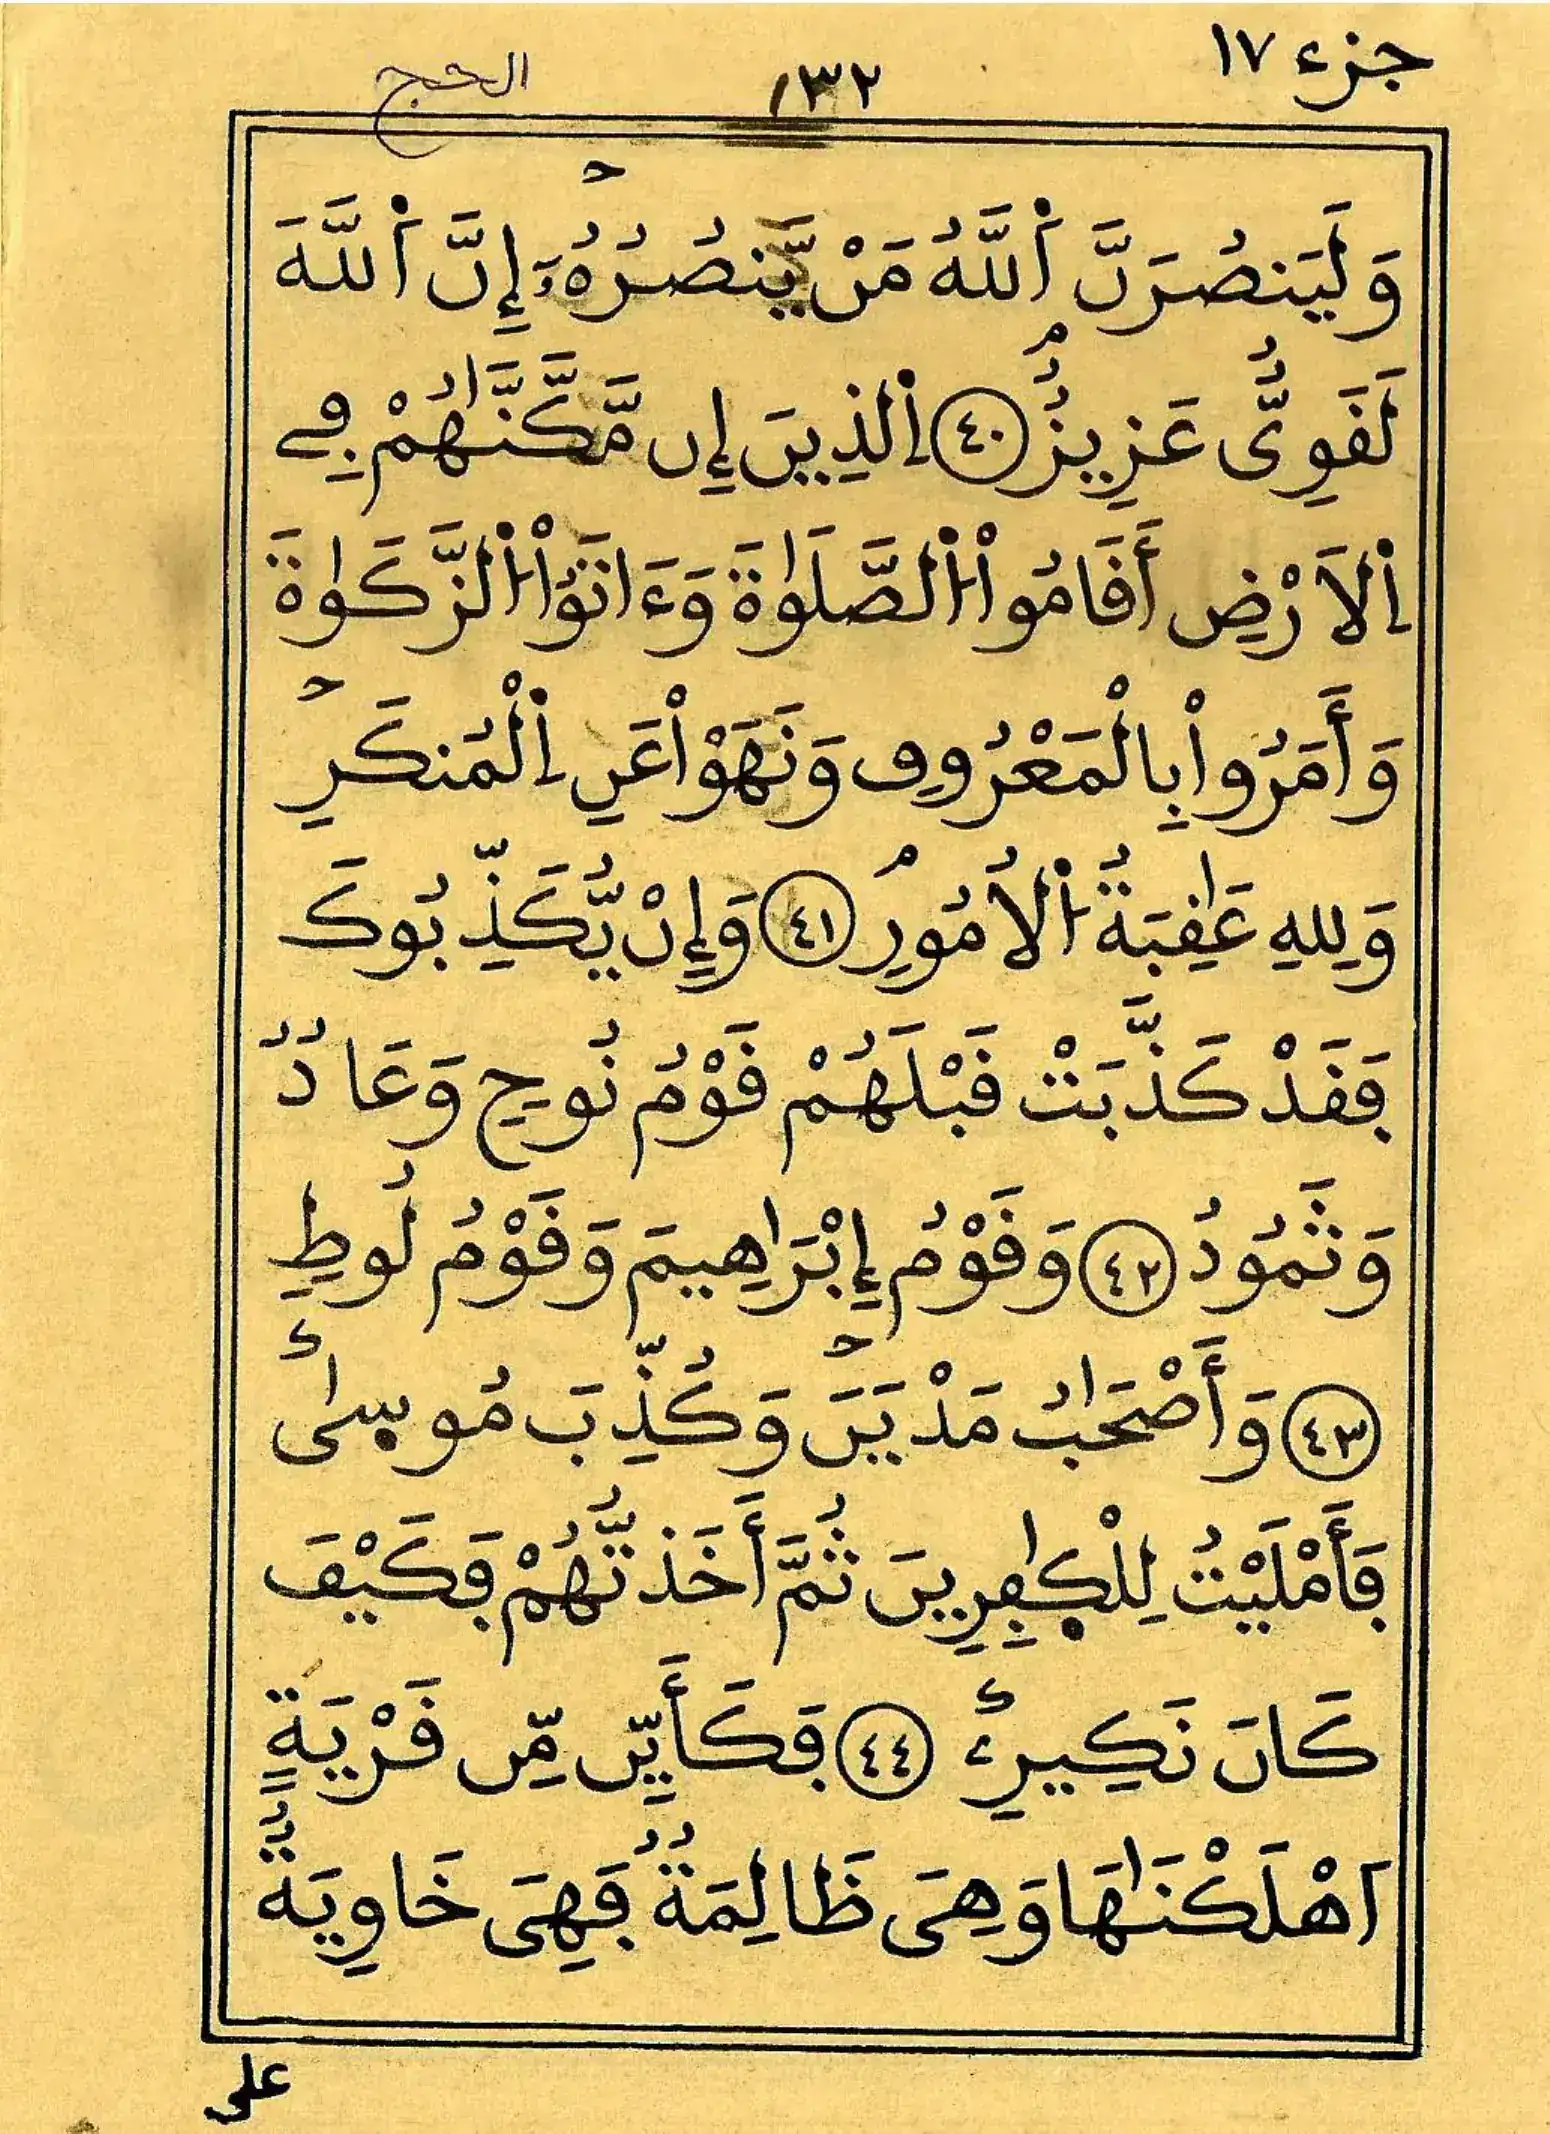 جزء ١٧
١٣٢
الحج
وَلَيَنصُرَنَّ اَ۬للَّهُ مَنْ يَّنصُرُهُۥٓ إِنَّ اَ۬للَّهَ
لَقَوِيٌّ عَزِيزٌ ٤٠ اِ۬لذِينَ إِن مَّكَّنَّٰهُمْ فِے
اِ۬لَارْضِ أَقَامُواْ اُ۬لصَّلَوٰةَ وَءَاتَوُاْ اُ۬لزَّكَوٰةَ
وَأَمَرُواْ بِالْمَعْرُوفِ وَنَهَوْاْ عَنِ اِ۬لْمُنكَرِ
وَلِلهِ عَٰقِبَةُ اُ۬لُامُورِ ٤١ وَإِنْ يُّكَذِّبُوكَ
فَقَدْ كَذَّبَتْ قَبْلَهُمْ قَوْمُ نُوحٍ وَعَادٌ
وَثَمُودُ ٤٢ وَقَوْمُ إِبْرَٰهِيمَ وَقَوْمُ لُوطٍ
٤٣ وَأَصْحَٰبُ مَدْيَنَ وَكُذِّبَ مُوسٜىٰ
فَأَمْلَيْتُ لِلْكٰٜفِرِينَ ثُمَّ أَخَذتُّهُمْ فَكَيْفَ
كَانَ نَكِيرِۦ ٤٤ فَكَأَيِّن مِّن قَرْيَةٍ
اَهْلَكْنَٰهَا وَهِيَ ظَالِمَةٌ فَهِيَ خَاوِيَةٌ
على